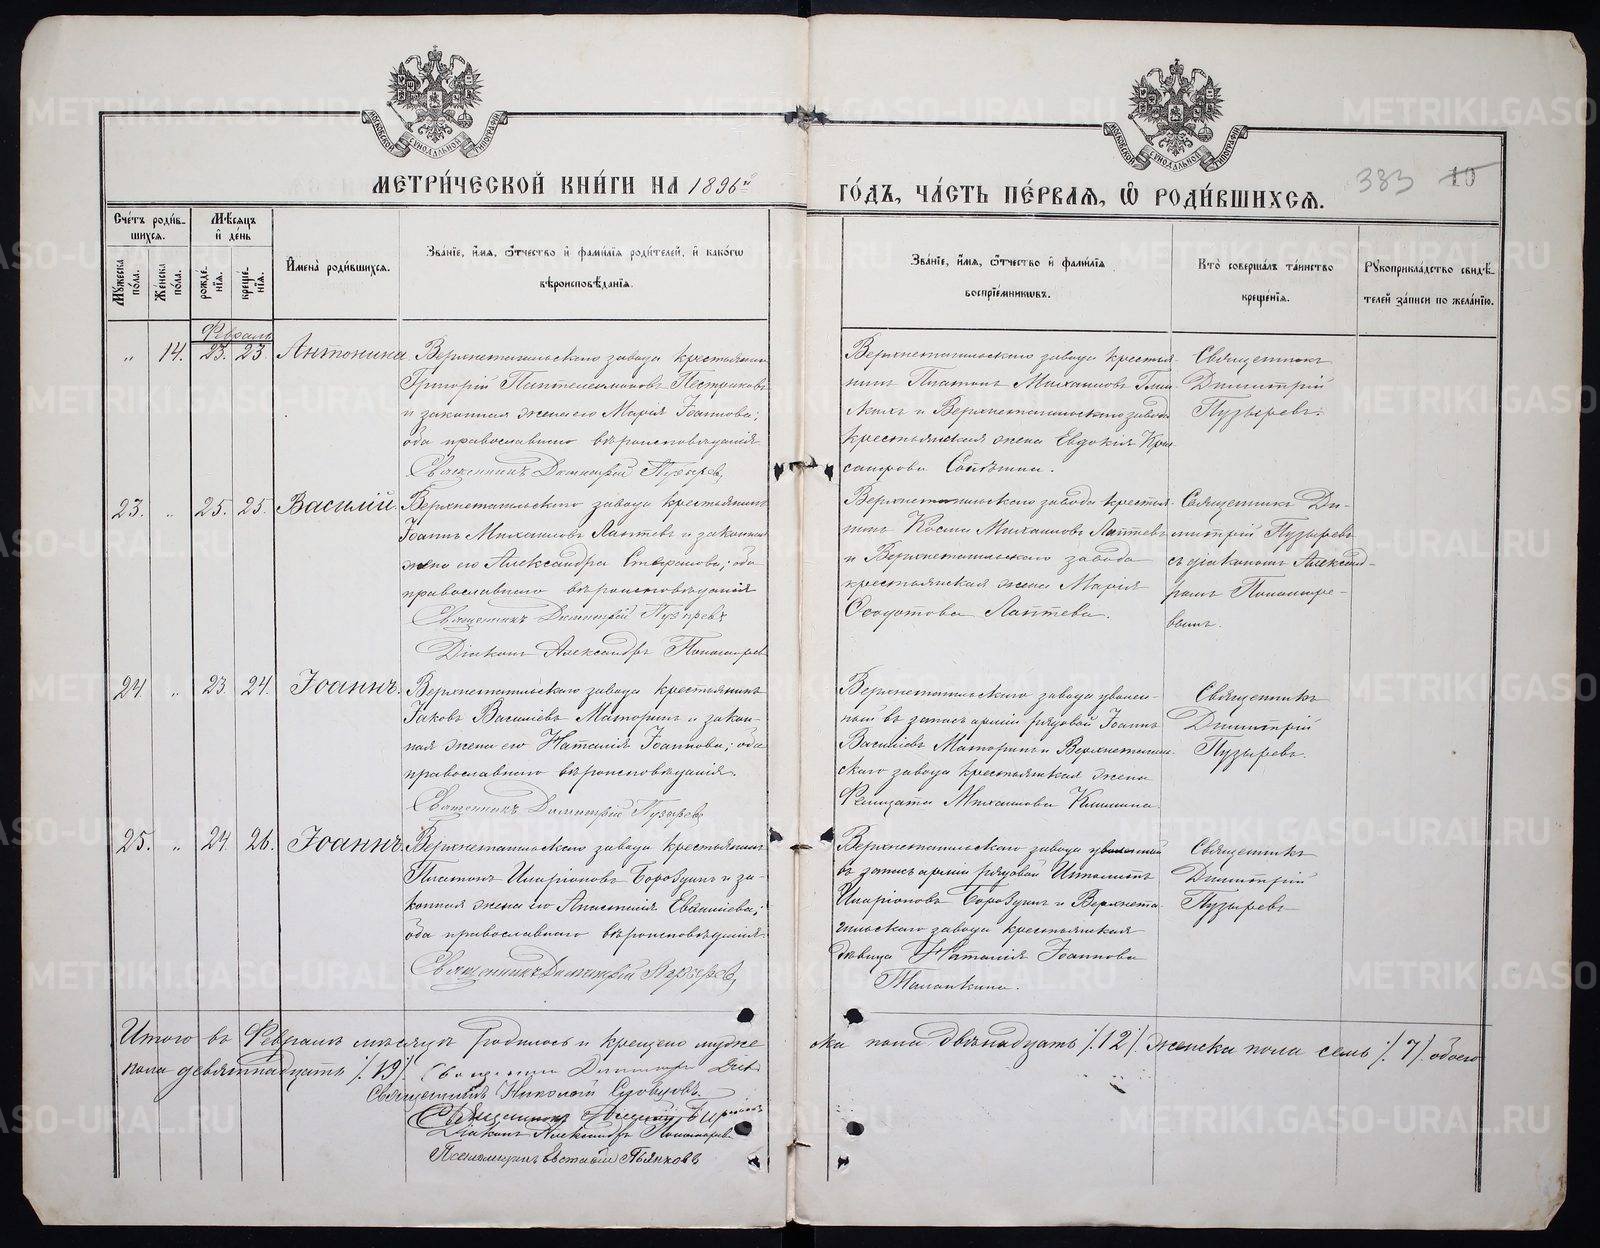 МЕТРИ́ЧЕСКОЙ КНИ́ГИ НА 1896й
ГО́ДЪ, ЧА́СТЬ ПЕ́РВАѦ, Ѡ РОДИ́ВШИХСѦ.
383 10
Сче́тъ роди́в-
шихсѧ.
Мѣ́сѧцъ
и де́нь
Мꙋ́жеска по́ла.
Же́нска по́ла.
рожде́нїѧ.
креще́нїѧ.
И́мена̀ роди́вшихсѧ.
Зва́нїе, и́мѧ, ѻ́тчество и фами́лїѧ роди́телей, и како́гѡ
вѣроисповѣ́данїѧ.
Зва́нїе, и́мѧ, ѻ́тчество и фами́лїѧ
воспрїе́мникѡвъ.
Кто̀ соверша́лъ та́инство
креще́нїѧ.
Рꙋкоприкла́дство свидѣ́-
телей за́писи по жела́нїю.
Февраль
" 14. 23. 23. Антонина
Верхнетагильскаго завода крестьянинъ
Григорій Пантелеимоновъ Пестриковъ
и законная жена его Марія Іоаннова;
оба православнаго вѣроисповѣданія
Священникъ Димитрій Пузыревъ
Верхнетагильскаго завода крестья-
нинъ Платонъ Михаиловъ
и Верхнетагильскаго завода
крестьянская жена Евдокія
Священникъ
Димитрій
Пузыревъ.
23. " 25. 25. Василій.
Верхнетагильскаго завода крестьянинъ
Іоаннъ Михаиловъ Лаптевъ и законная
жена его Александра Стефанова; оба
православнаго вѣроисповѣданія
Священникъ Димитрій Пузыревъ
Діаконъ Александръ Пономаревъ
Верхнетагильскаго завода крестья-
нинъ Косма Михаиловъ Лаптевъ
и Верхнетагильскаго завода
крестьянская жена Марія
Ѳеодотова Лаптева.
Священникъ Ди-
митрій Пузыревъ
съ діакономъ Александ-
ромъ Пономаре-
вымъ.
24. " 23. 24. Іоаннъ.
Верхнетагильскаго завода крестьянинъ
Іаковъ Василіевъ Маторинъ и закон-
ная жена его Наталія Іоаннова; оба
православнаго вѣроисповѣданія.
Священникъ Димитрій Пузыревъ
Верхнетагильскаго завода уволен-
ный въ запасъ арміи рядовой Іоаннъ
Василіевъ Маторинъ и Верхнетагиль-
скаго завода крестьянская жена
Фелицата Михаилова
Священникъ
Димитрій
Пузыревъ.
25. " 24. 26. Іоаннъ.
Верхнетагильскаго завода крестьянинъ
Платонъ Иларіоновъ Бороздинъ и за-
конная жена его Анастасія
оба православнаго вѣроисповѣданія.
Священникъ Димитрій Пузыревъ
Верхнетагильскаго завода уволенный
въ запасъ арміи рядовой
Иларіоновъ Бороздинъ и Верхнета-
гильскаго завода крестьянская
дѣвица Наталія Іоаннова
Маланкина.
Священникъ
Димитрій
Пузыревъ
Итого въ Февралѣ мѣсяцѣ родилось и крещено муже
ска пола двѣнадцать /12/ женска пола семь /7/ обоего
пола девятнадцать /19/. Священникъ Димитрій
Священникъ Николай Словцовъ
Священникъ
Діаконъ Александръ Пономаревъ
Псаломщикъ Евстафій Пьянковъ
METRIKI.GASO-URAL.RU